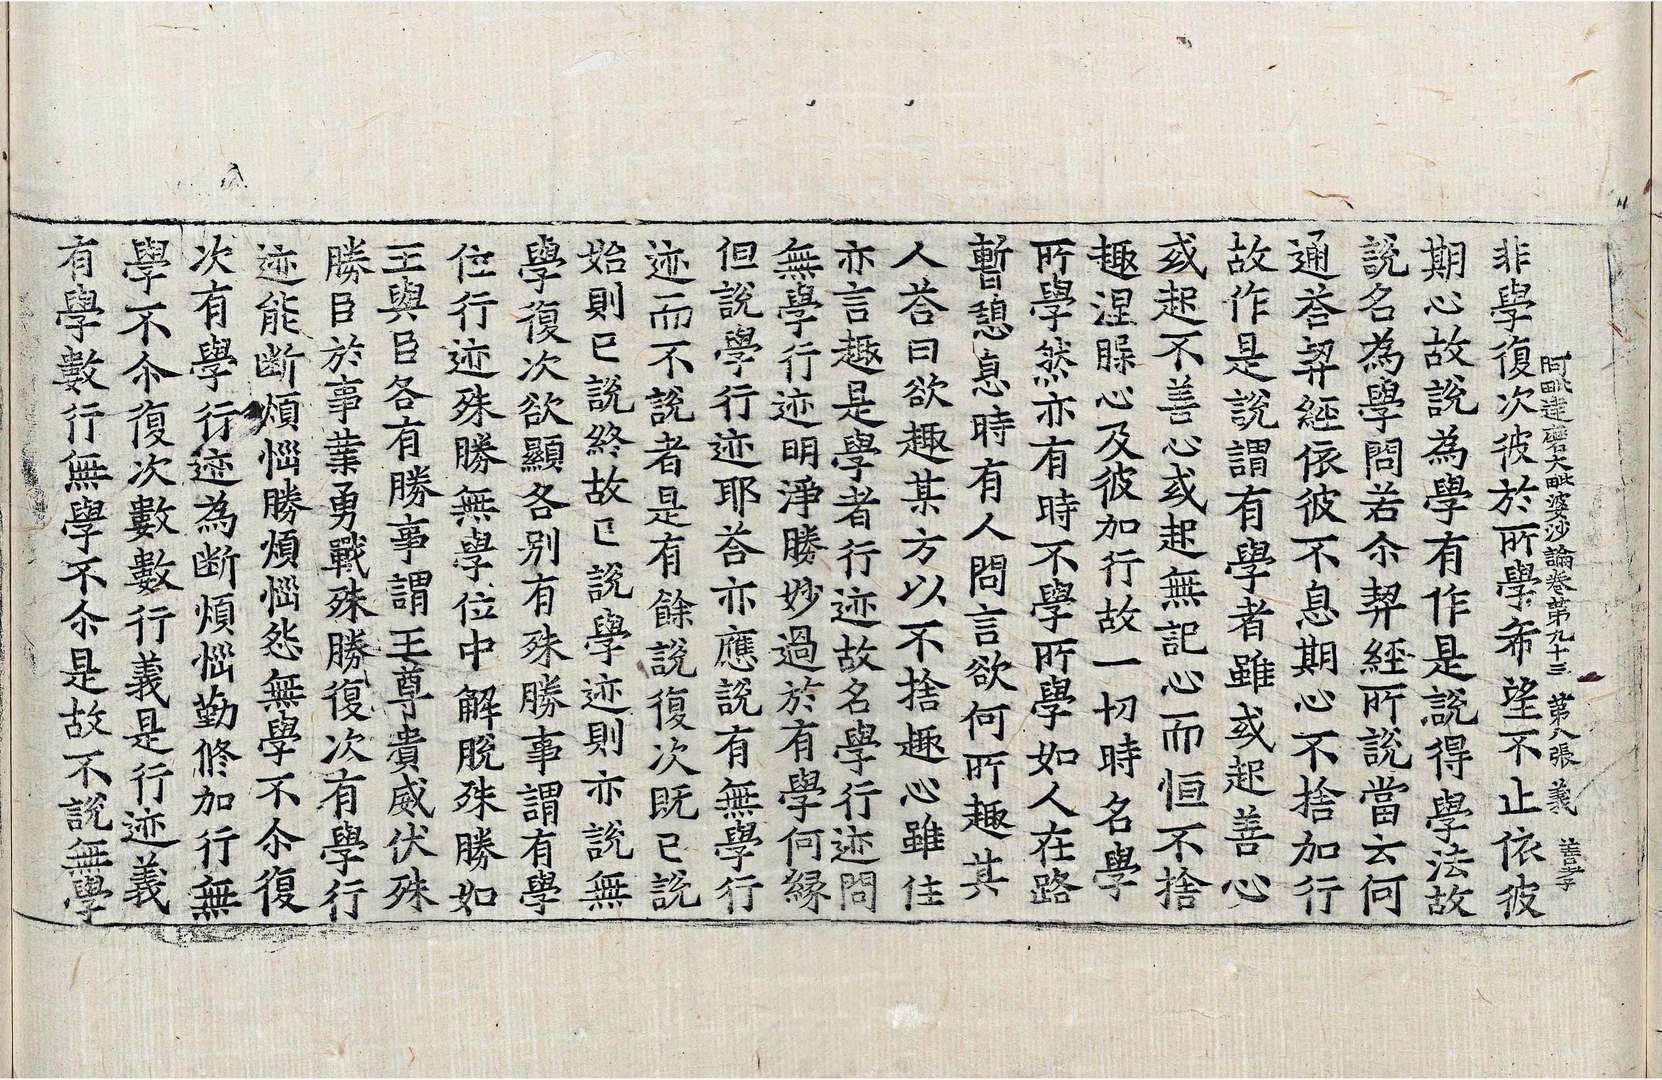 阿毗達磨大毗婆沙論卷第九十三 第八張 義 善字
非學復次彼於所學希望不止依彼
期心故說為學有作是說得學法故
說名為學問若尒契經所說當云何
通荅契經依彼不息期心不捨加行
故作是說謂有學者雖或起善心
或起不善心或起無記心而恒不捨
趣涅槃心及彼加行故一切時名學
所學然亦有時不學所學如人在路
暫憩息時有人問言欲何所趣其
人荅曰欲趣某方以不捨趣心雖住
亦言趣是學者行迹故名學行迹問
無學行迹明淨勝妙過於有學何緣
但說學行迹耶荅亦應說有無學行
迹而不說者是有餘說復次既已說
始則已說終故已說學迹則亦說無
學復次欲顯各別有殊勝事謂有學
位行迹殊勝無學位中解脫殊勝如
王與臣各有勝事謂王尊貴威伏殊
勝臣於事業勇戰殊勝復次有學行
迹能断煩惱勝煩惱怨無學不尒復
次有學行迹為断煩惱勤修加行無
學不尒復次數數行義是行迹義
有學數行無學不尒是故不說無學